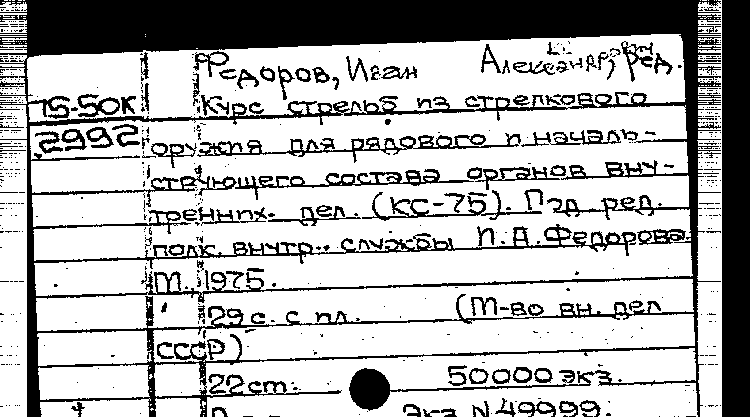 Федоров, Иван Александрович, ред.
75-50К Курс стрельб из стрелкового
2992 оружия для рядового и началь-
ствующего состава органов вну-
тренних дел. (КС-75). Под ред.
полк. внутр. службы И.А.Федорова.
М., 1975.
29 с. с ил. (М-во вн. дел
СССР)
22 cm. 50000 экз.
Экз. N 49999.